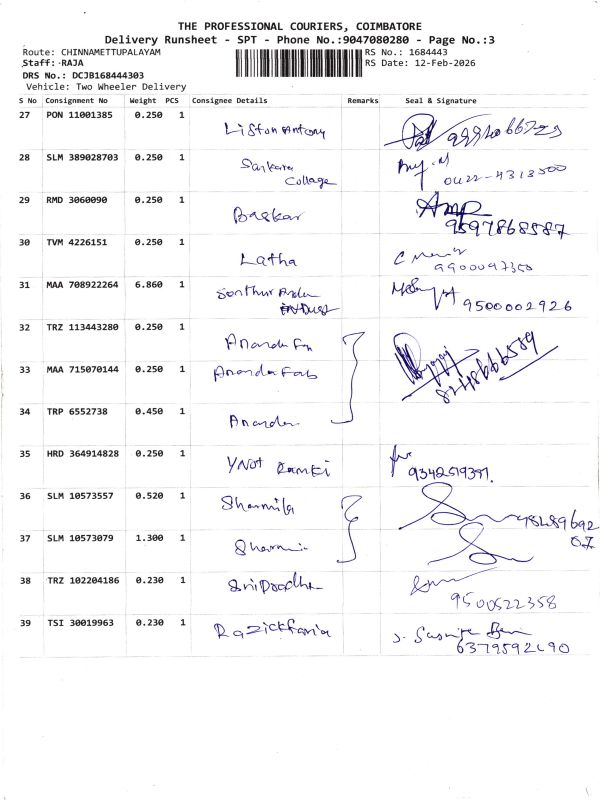 THE PROFESSIONAL COURIERS, COIMBATORE
Delivery Runsheet - SPT - Phone No.:9047080280 - Page No.:3
Route: CHINNAMETTUPALAYAM RS No.: 1684443
Staff: RAJA RS Date: 12-Feb-2026
DRS No.: DCJB168444303
Vehicle: Two Wheeler Delivery
S No Consignment No Weight PCS Consignee Details Remarks Seal & Signature
27 PON 11001385 0.250 1 Liston Antony
28 SLM 389028703 0.250 1 Sankara Collage 0422-4313500
29 RMD 3060090 0.250 1 Baskar
9597868587
30 TVM 4226151 0.250 1 Latha
9900097350
31 MAA 708922264 6.860 1
9500002926
32 TRZ 113443280 0.250 1 Ananda
33 MAA 715070144 0.250 1 Ananda Fab
34 TRP 6552738 0.450 1 Anandan
35 HRD 364914828 0.250 1 YNOT Ramki
36 SLM 10573557 0.520 1 Sharmila
37 SLM 10573079 1.300 1
38 TRZ 102204186 0.230 1
9500522358
39 TSI 30019963 0.230 1